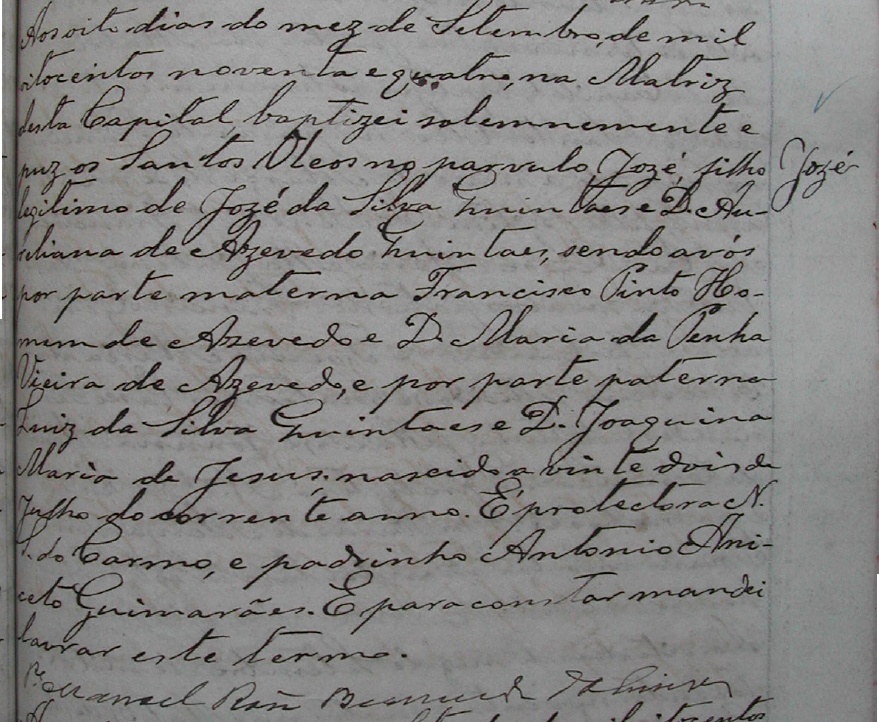 Aos oito dias do mez de Setembro, de mil
oitocentos noventa e quatro, na Matriz
desta Capital, baptizei solemnemente e
puz os Santos Oleos no parvulo, Jozé, filho
Jozé
legitimo de Jozé da Silva Guintaes e D. Au-
reliana de Azevedo Guintaes, sendo avós
por parte materna Francisco Pinto Ho-
mem de Azevedo e D. Maria da Penha
Vieira de Azevedo, e por parte paterna
Luiz da Silva Guintaes e D. Joaquina
Maria de Jesus, nascido a vinte dois de
Julho do corrente anno. É protectora N.
S. do Carmo, e padrinho Antonio Ani-
ceto Guimarães. E para constar mandei
lavrar este termo.
Pe Manoel